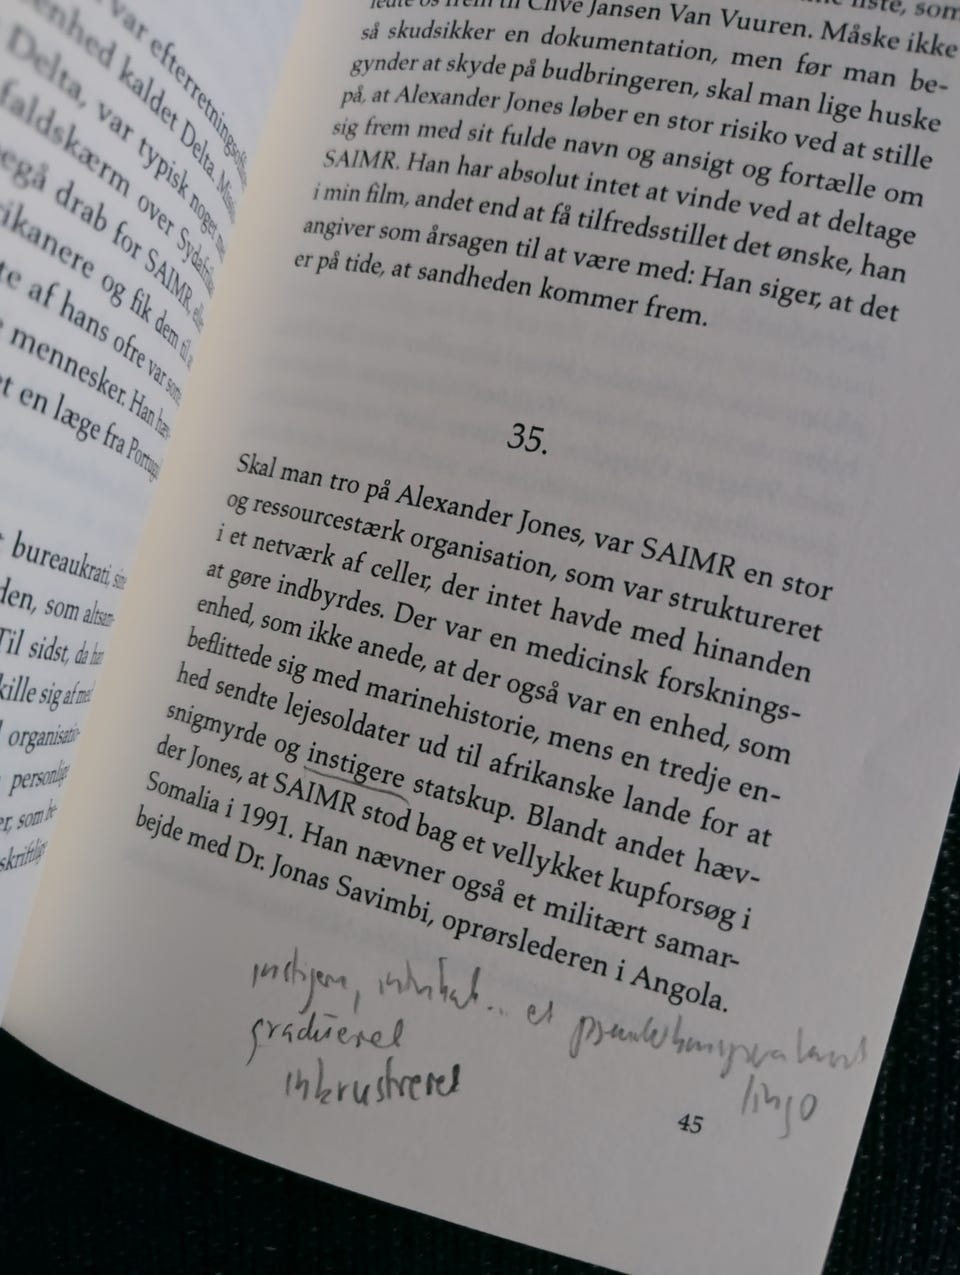 var efterretningsoffi-
enhed kaldet Delta. Missio-
Delta, var typisk noget med
faldskærm over Sydafrika
begå drab for SAIMR, eller
rikanere og fik dem til
te af hans ofre var som
mennesker. Han hæv-
t en læge fra Portugal
bureaukrati,
den, som altsam-
Til sidst, da han
kille sig af med
organisatio-
personlige
er, som be-
skriftlige
ledte os frem til Clive Jansen Van Vuuren. Måske ikke
så skudsikker en dokumentation, men før man be-
gynder at skyde på budbringeren, skal man lige huske
på, at Alexander Jones løber en stor risiko ved at stille
sig frem med sit fulde navn og ansigt og fortælle om
SAIMR. Han har absolut intet at vinde ved at deltage
i min film, andet end at få tilfredsstillet det ønske, han
angiver som årsagen til at være med: Han siger, at det
er på tide, at sandheden kommer frem.
35.
Skal man tro på Alexander Jones, var SAIMR en stor
og ressourcestærk organisation, som var struktureret
i et netværk af celler, der intet havde med hinanden
at gøre indbyrdes. Der var en medicinsk forsknings-
enhed, som ikke anede, at der også var en enhed, som
beflittede sig med marinehistorie, mens en tredje en-
hed sendte lejesoldater ud til afrikanske lande for at
snigmyrde og instigere statskup. Blandt andet hæv-
der Jones, at SAIMR stod bag et vellykket kupforsøg i
Somalia i 1991. Han nævner også et militært samar-
bejde med Dr. Jonas Savimbi, oprørslederen i Angola.
instigere, ... et
gradueret lingo
inkrustreret
45